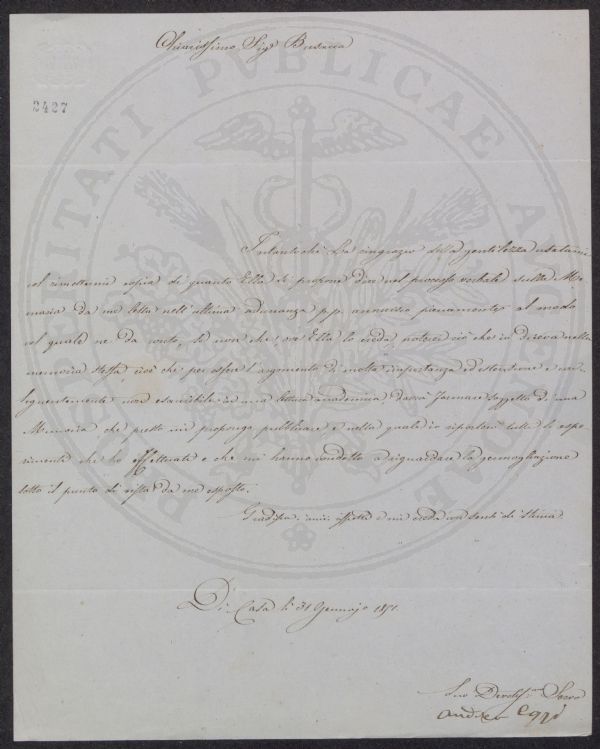 Chiarissimo Sig.r Busacca
2427
PROSPERITATI PVBLICAE AVGENDAE
Intantochè La ringrazio della gentilezza usatami
col rimettermi copia di quanto Ella si propone dire nel processo verbale sulla Me
moria da me letta nell'ultima adunanza p.p. annuisco pienamente al modo
col quale ne dà conto, se non che, se Ella lo creda potere ciò che io diceva nella
memoria stessa, cioè che per essere l'argomento di molta importanza ed estensione e con
seguentemente non esauribile in una lettura accademica, dovrà formare soggetto di una
Memoria che presto mi propongo pubblicare e nella quale io riporterò tutte le espe
rimenti che ho effettuate e che mi hanno condotto a riguardare la germogliazione
sotto il punto di vista da me esposto.
Gradisca i miei rispetti e mi creda con senti di stima
Di Casa li 31 Gennajo 1851.
Suo Devotiss.mo Servo
Andrea